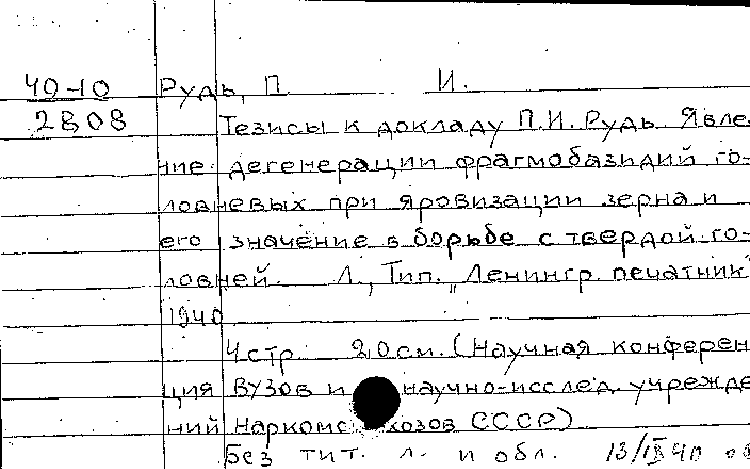 40-10 Рудь, П. И.
2808 Тезисы к докладу П.И. Рудь Явле
ние дегенерации фрагмобазидий го-
ловневых при яровизации зерна и
его значение в борьбе с твердой го-
ловней. Л., Тип. "Ленингр. печатник"
1940
4 стр. 20 см. (Научная конферен
ция Вузов и научно-исслед. учрежде
ний Наркомс хозов СССР)
Без тит. л. и обл. 13/IX 40